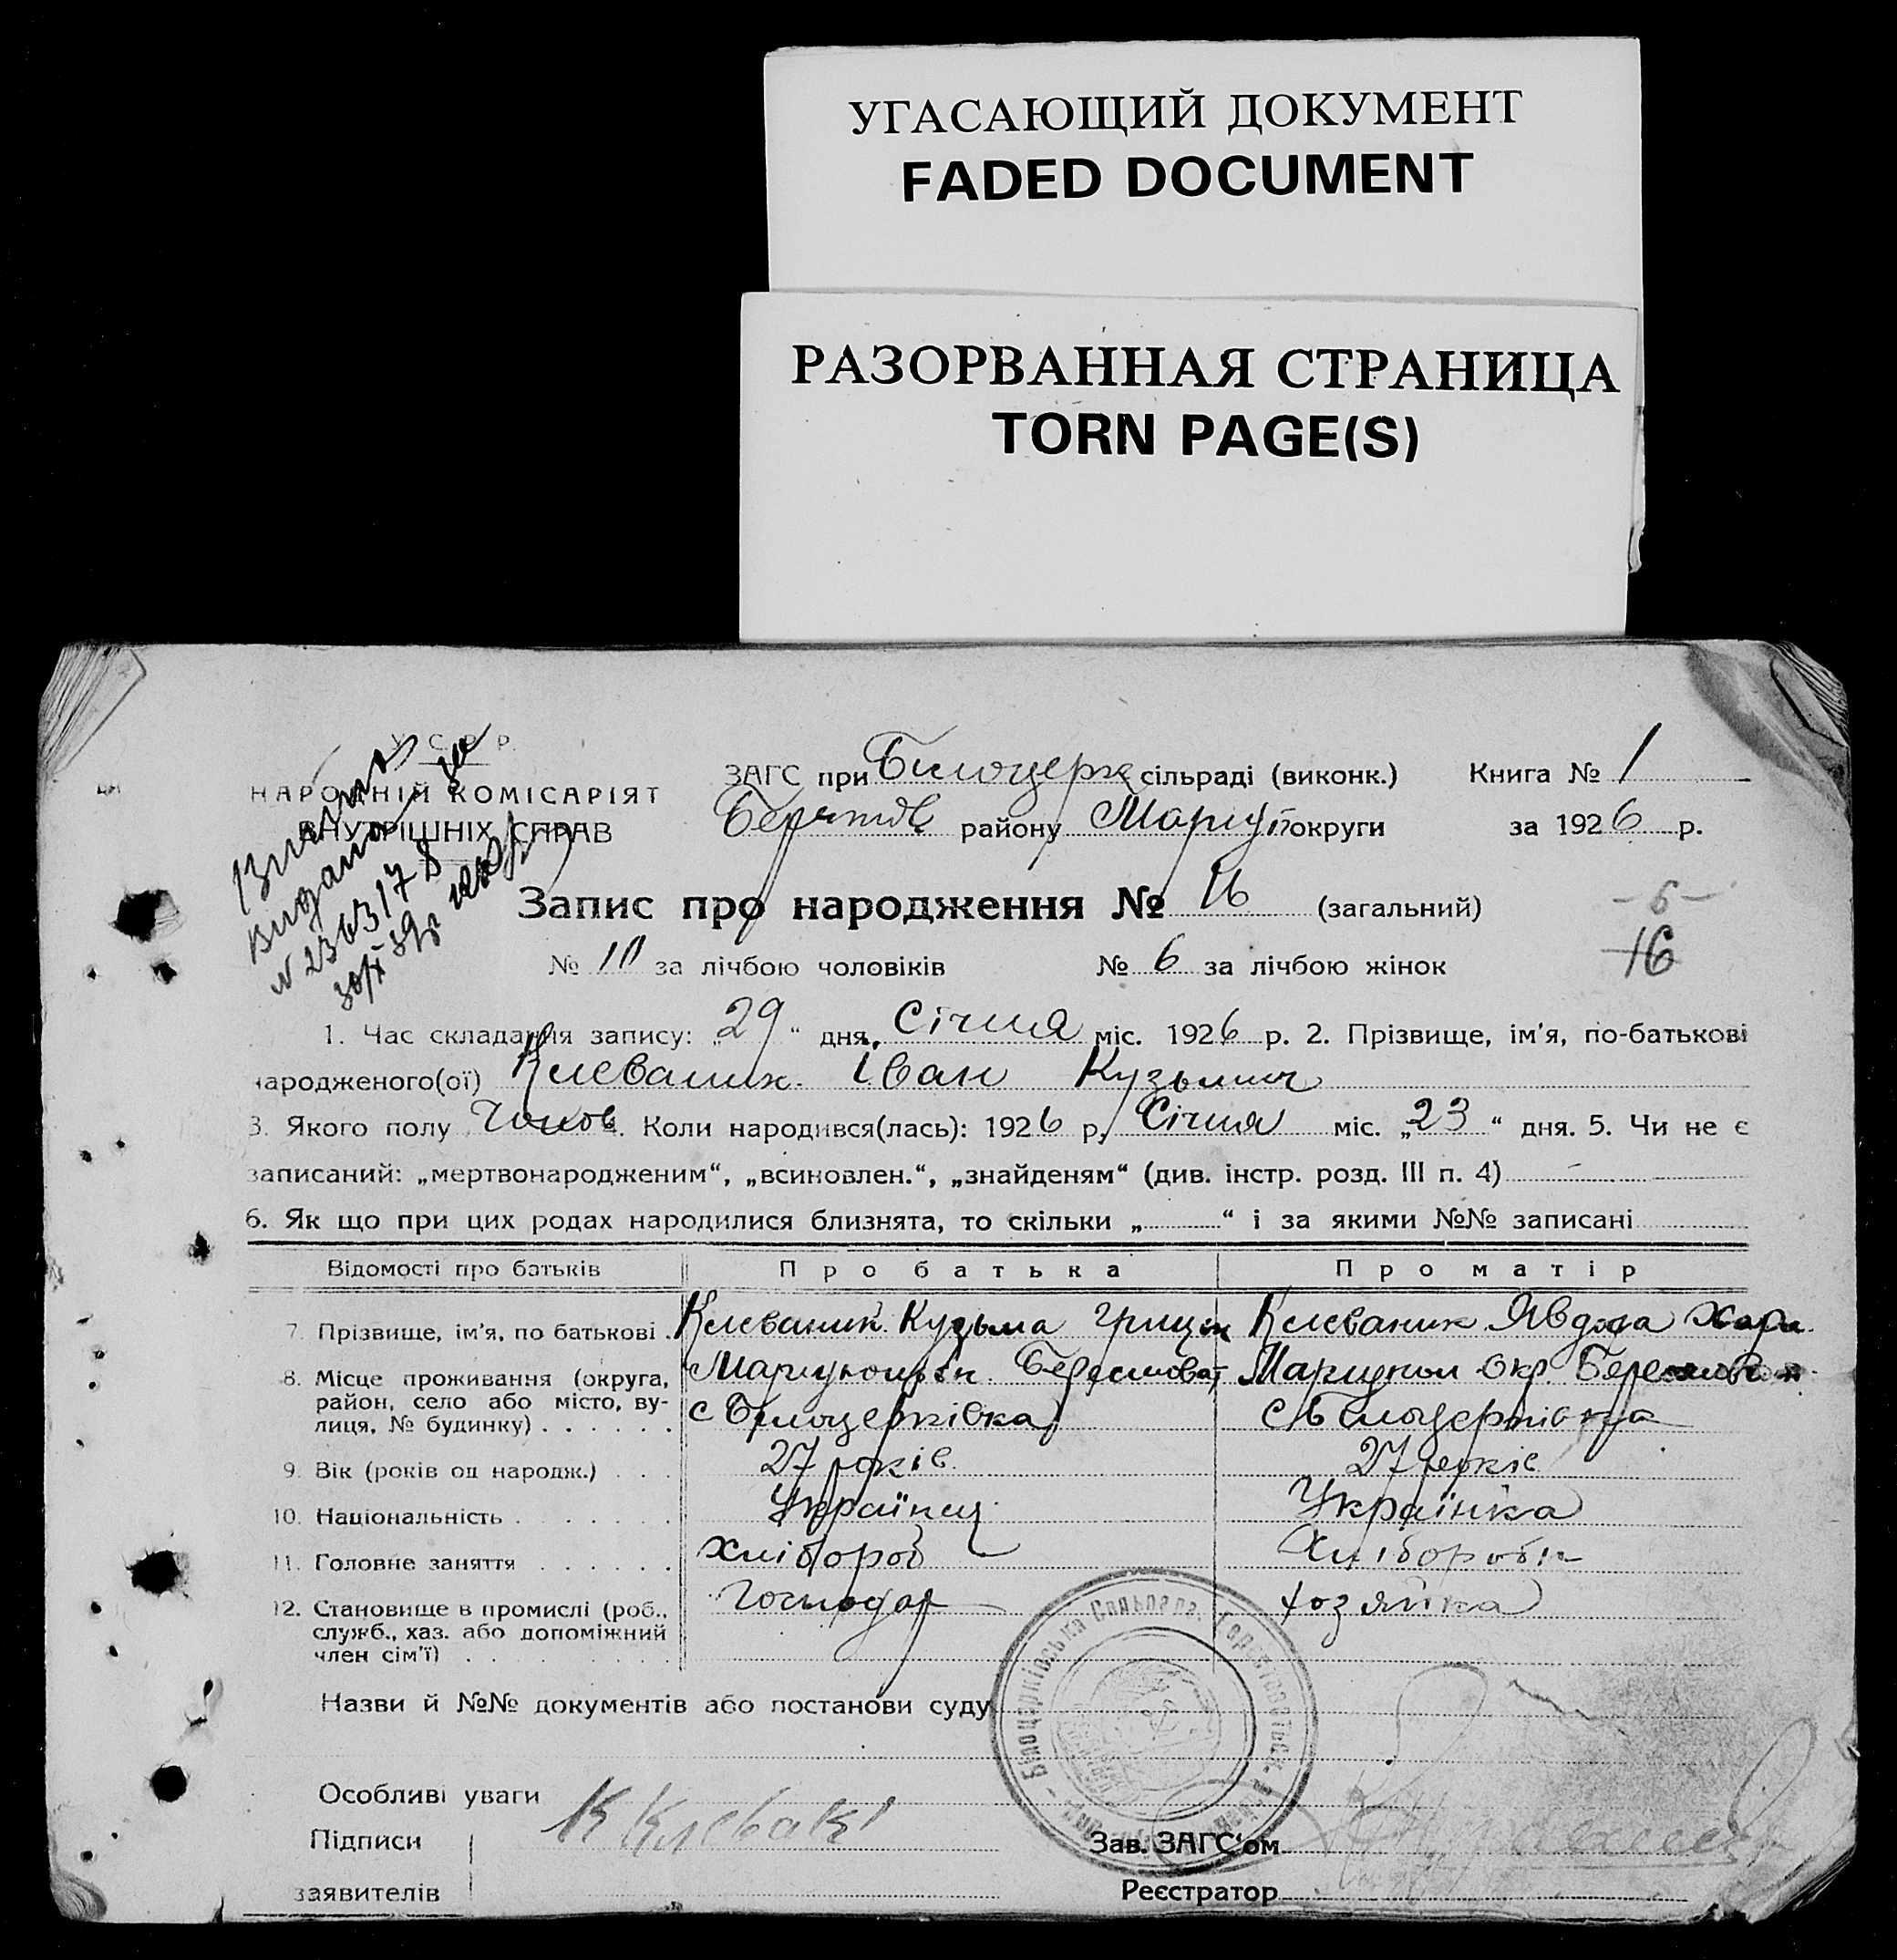 УГАСАЮЩИЙ ДОКУМЕНТ
FADED DOCUMENT
РАЗОРВАННАЯ СТРАНИЦА
TORN PAGE(S)
У. С. Р. Р.
НАРОДНІЙ КОМІСАРІЯТ
ВНУТРІШНІХ СПРАВ
N 2363178
ЗАГС при Билоцерк сільраді (виконк.) Книга № 1
району Маріуп округи за 1926 р.
Запис про народження № 16 (загальний)
- 6 -
№ 10 за лічбою чоловіків № 6 за лічбою жінок
16
1. Час складання запису: „29“ дня, Січня міс. 1926 р. 2. Прізвище, ім'я, по-батькові
народженого(ої) Клеваник Іван Кузьмич
3. Якого полу Чолов. Коли народився(лась): 1926 р. Січня міс. „23“ дня. 5. Чи не є
записаний: „мертвонародженим“, „всиновлен.“, „знайденям“ (див. інстр. розд. III п. 4)
6. Як що при цих родах народилися близнята, то скільки „ “ і за якими №№ записані
Відомості про батьків Про батька Про матір
7. Прізвище, ім'я, по батькові Клеваник Кузьма Клеваник Явдоха Хари
8. Місце проживання (округа, Маріупольск Берестоват Мариупол Окр. Берестоват
район, село або місто, ву- с Білоцерківка с Білоцерківка
лиця, № будинку)
9. Вік (років од народж.) 27 років 27 років
10. Національність Українец Українка
11. Головне заняття Хлібороб Хліборобка
12. Становище в промислі (роб., Господар Хозяйка
служб., хаз. або допоміжний
член сім'ї)
Назви й №№ документів або постанови суду
Білоцерківська Сільрада
Особливі уваги
Підписи К Клеваќ Зав. ЗАГС'ом
заявителів Реєстратор